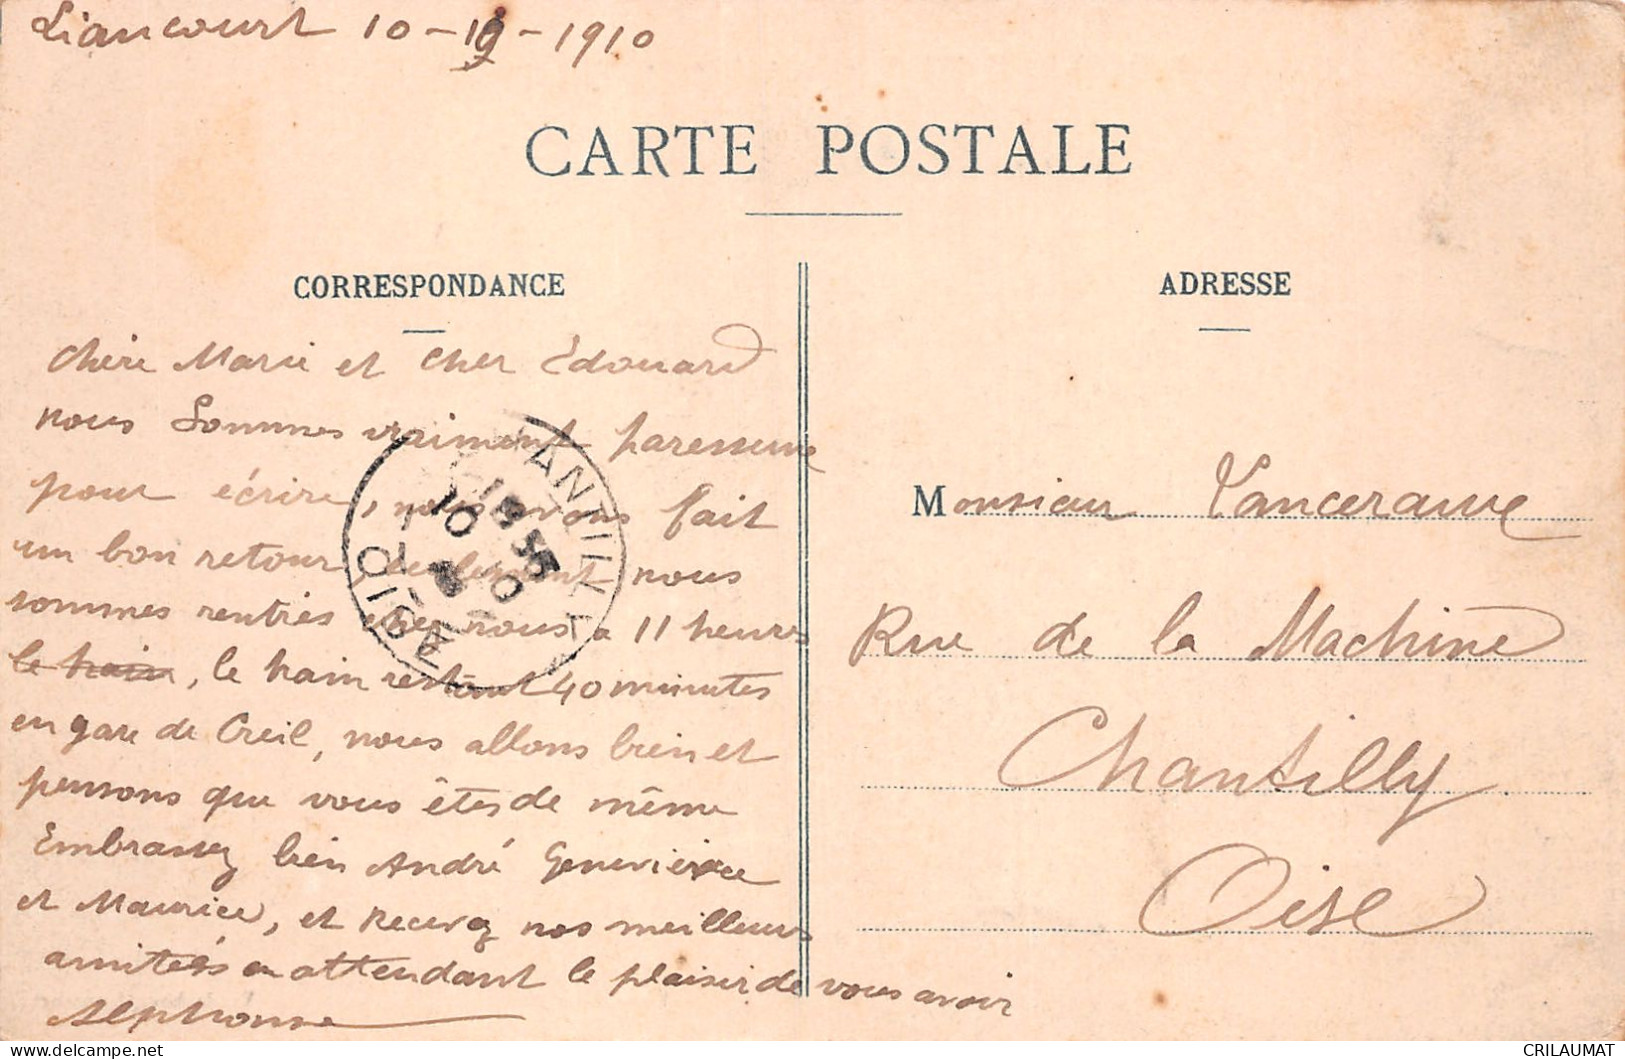 Liancourt 10-10-1910
CARTE POSTALE
CORRESPONDANCE
ADRESSE
Chère Marie et Cher Edouard
nous Sommes vraiment paresseux
pour écrire, nous avons fait
un bon retour, seulement nous
sommes rentrés chez nous a 11 heures
le train, le train restant 40 minutes
en gare de Creil, nous allons bien et
pensons que vous êtes de même
Embrassez bien André Geneviève
et Maurice, et Recevez nos meilleurs
amitiés en attendant le plaisir de vous avoir
Alphonse
Monsieur
Rue de la Machine
Chantilly
Oise
CHANTILLY
OISE
CRILAUMAT